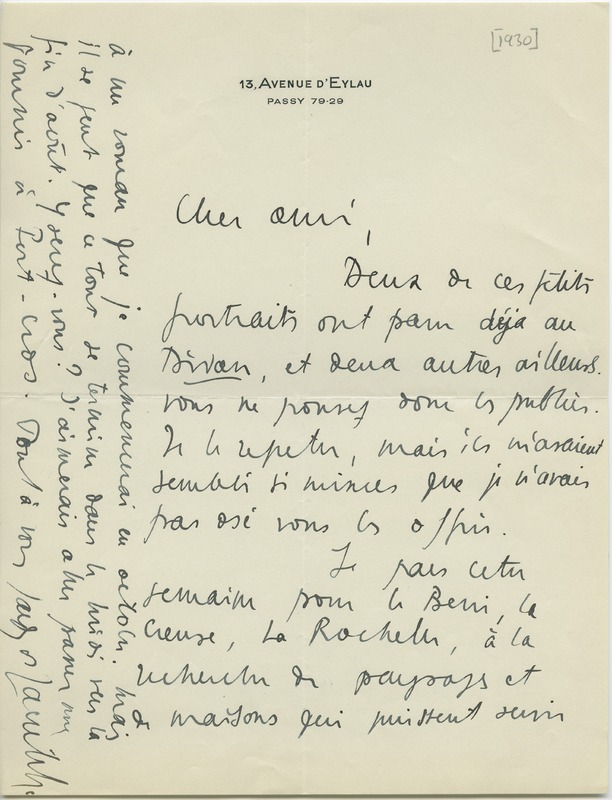 [1930]
13, AVENUE D'EYLAU
PASSY 79-29
Cher ami,
Deux de ces petits
portraits ont paru déjà au
Divan, et deux autres ailleurs.
Vous ne pouvez donc les publier.
Je le regrette, mais ils m'avaient
semblé si minces que je n'avais
pas osé vous les offrir.
Je pars cette
semaine pour le Berri, la
Creuse, La Rochelle, à la
recherche de paysages et
de maisons qui puissent servir
à un roman que je commencerai en octobre. Mais
il se peut que ce tour se termine dans le midi vers la
fin d'août. Y serez-vous? J'aimerais aller passer une
journée à Port-Cros. Tout à vous